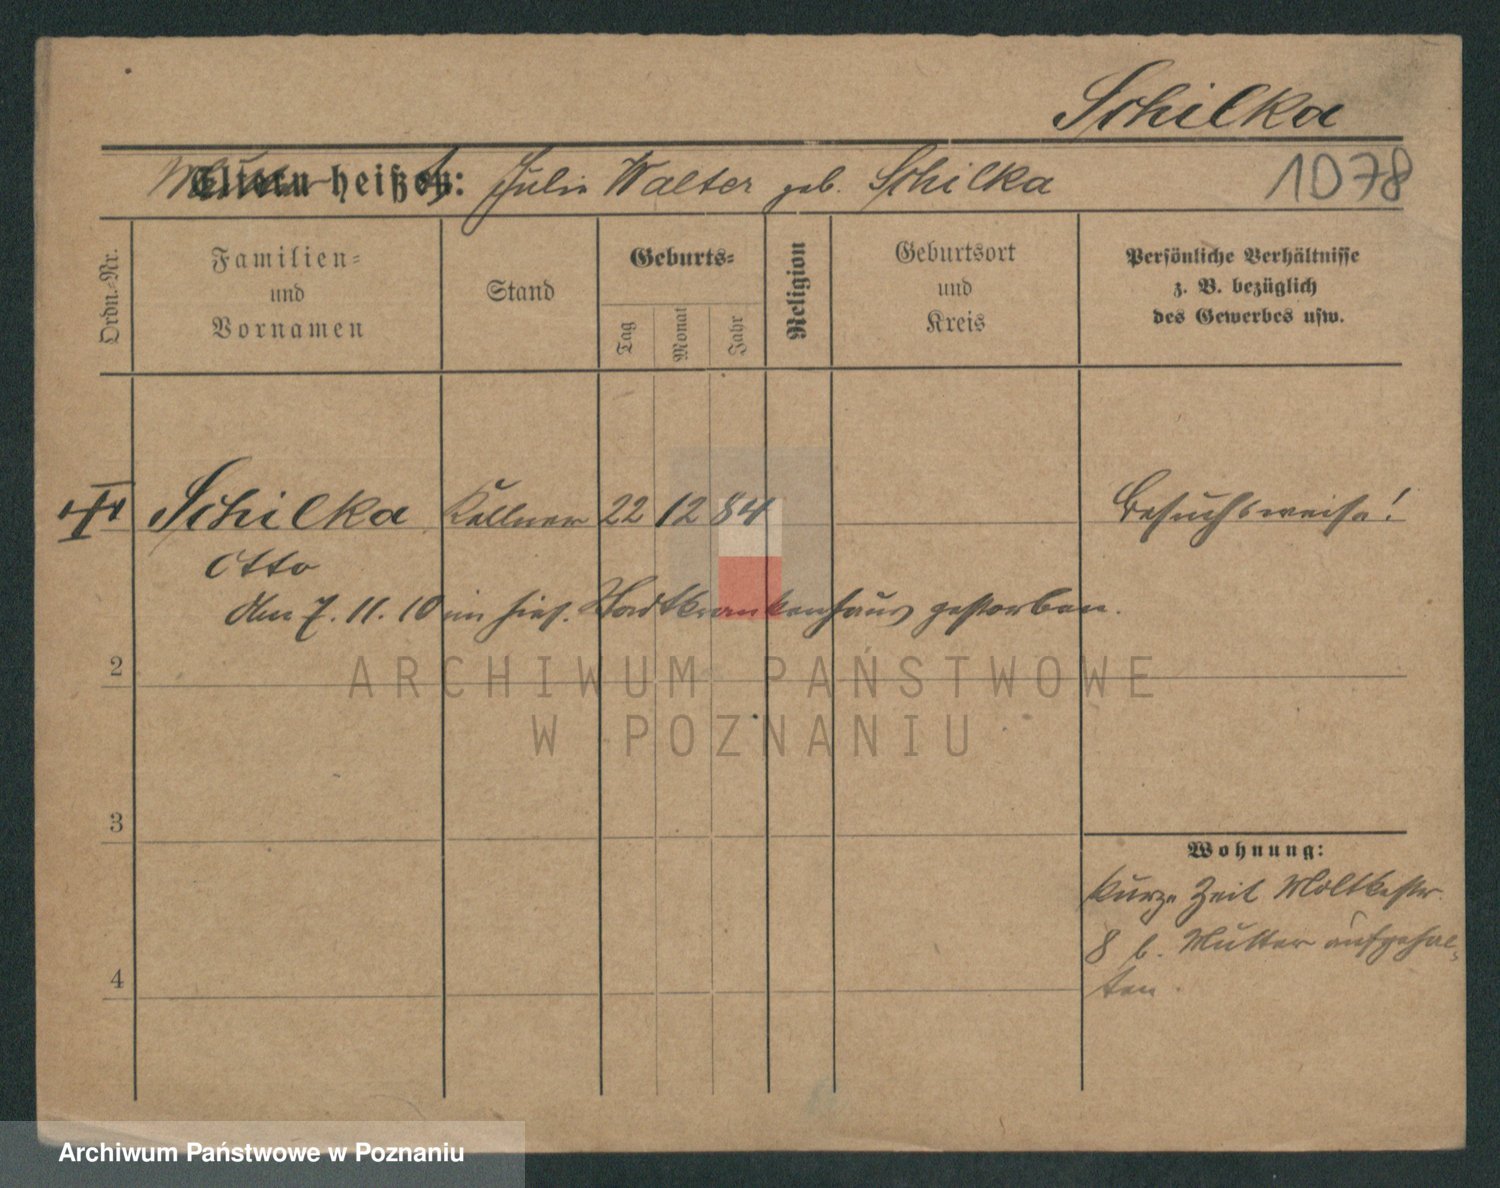 Schilka
Mutter heißt: Julie Walter geb. Schilka
1078
Ordn.-Nr.
Familien-
und
Vornamen
Stand
Geburts-
Tag
Monat
Jahr
Religion
Geburtsort
und
Kreis
Persönliche Verhältnisse
z. B. bezüglich
des Gewerbes usw.
Schilka Kellner 22 12 84 Besuchsweise!
Otto
Am 7. 11. 10 im hies. Stadtkrankenhaus gestorben.
2
ARCHIWUM PAŃSTWOWE
W POZNANIU
3
Wohnung:
Kurze Zeit Moltkestr.
8 b. Mutter aufgehal-
ten.
4
Archiwum Państwowe w Poznaniu